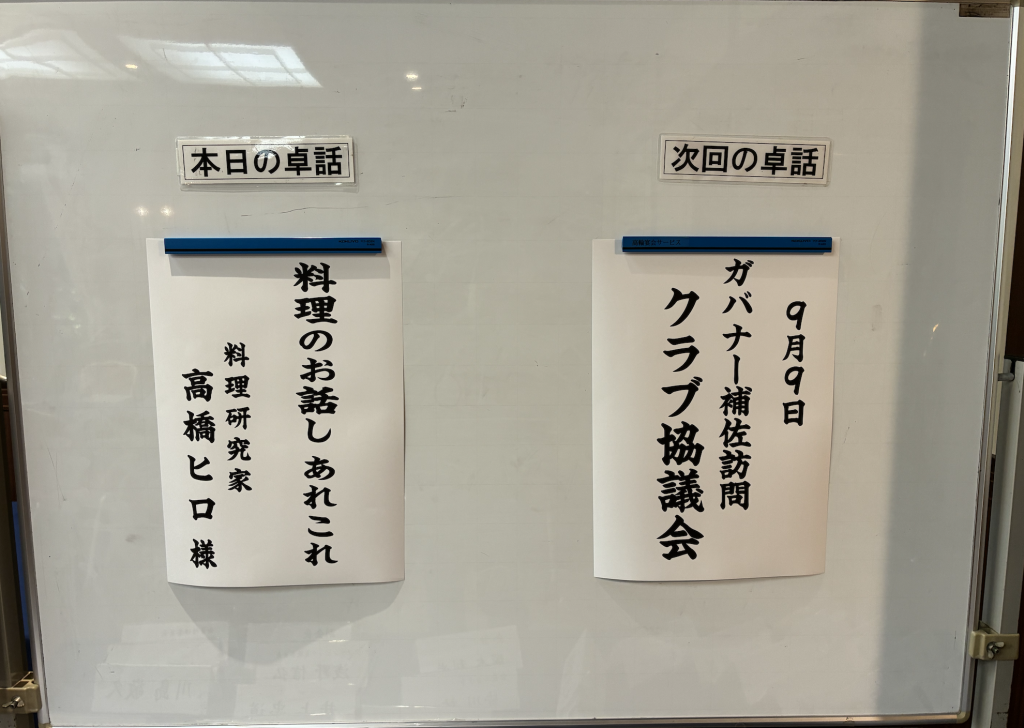 本日の卓話
料理のお話し あれこれ
料理研究家
高橋ヒロ 様
次回の卓話
9月9日
ガバナー補佐訪問
クラブ協議会